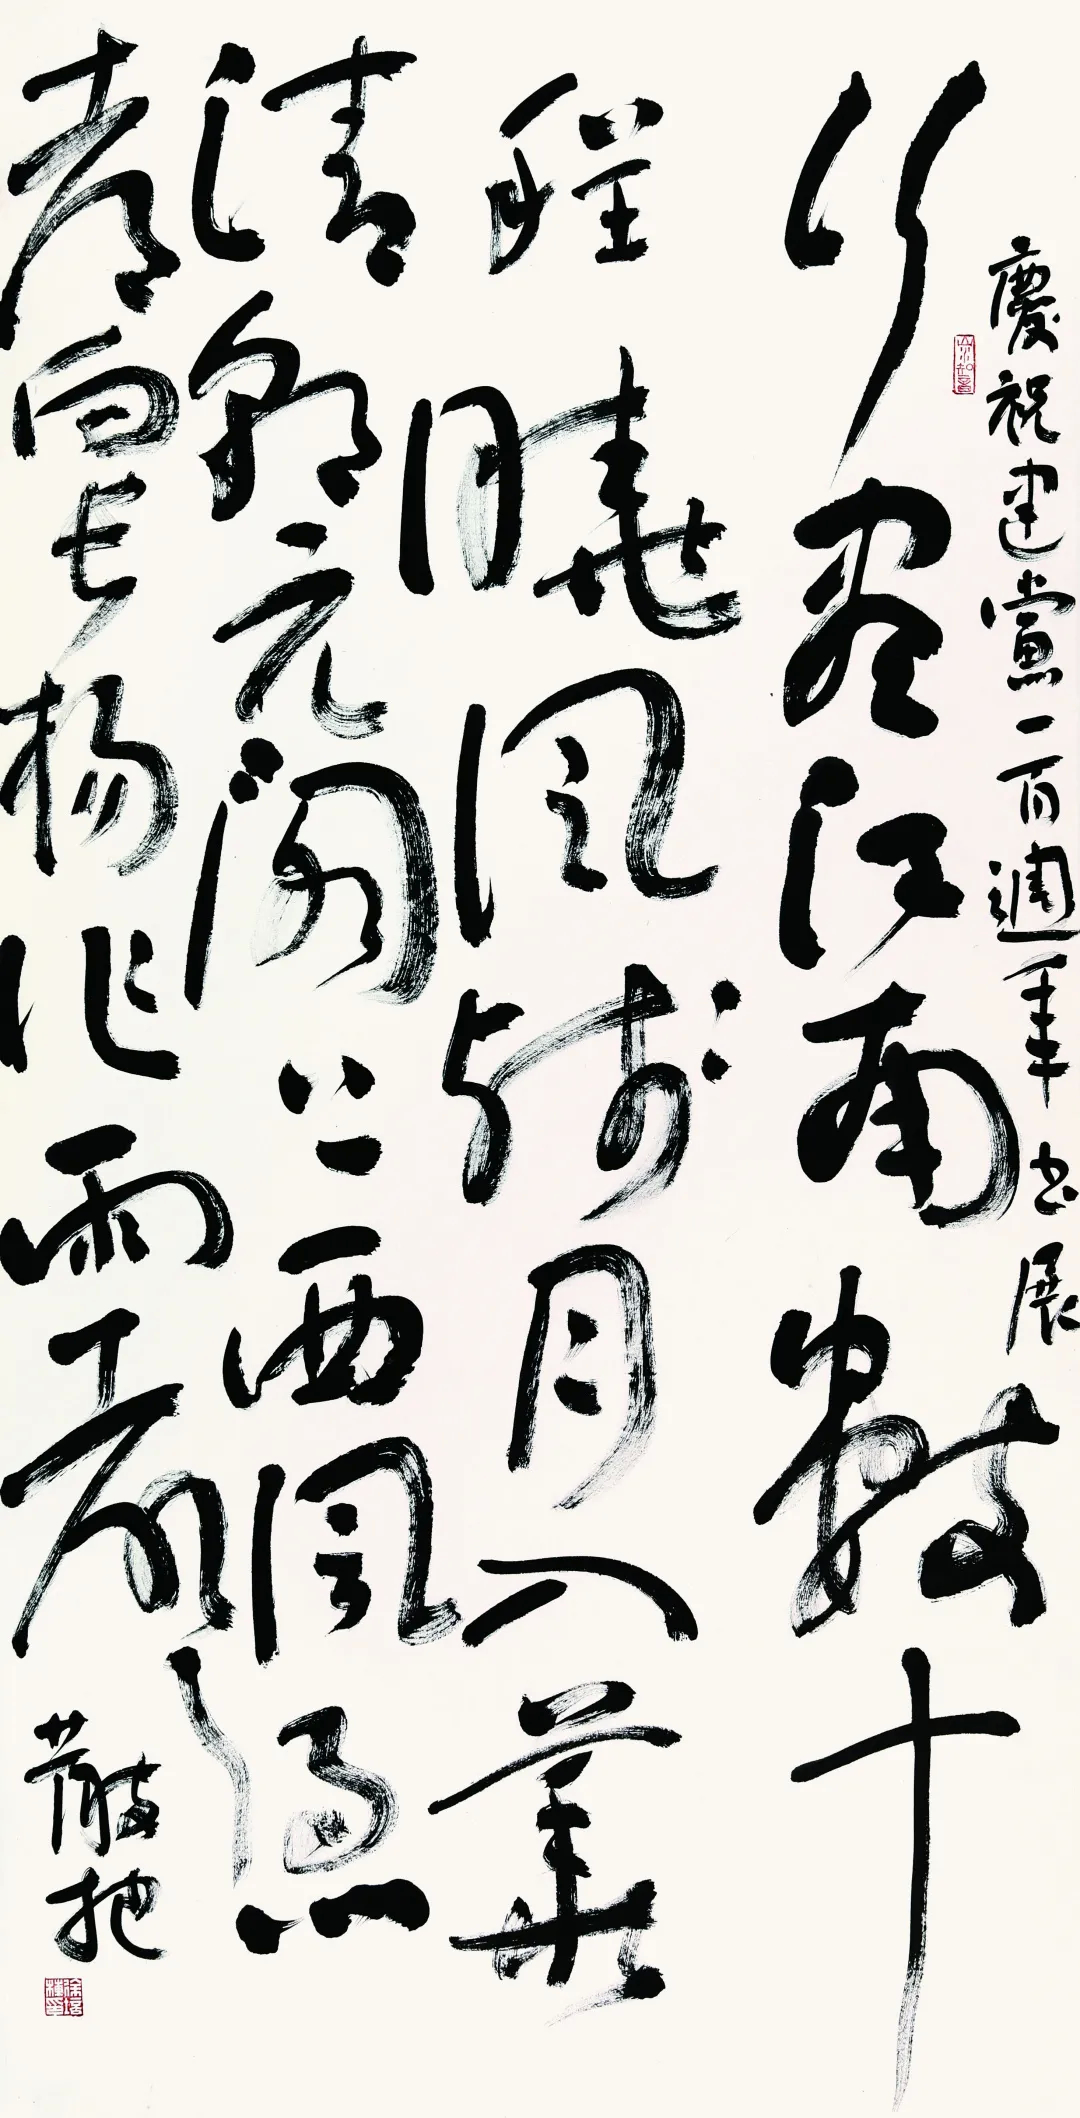 慶祝建黨一百週年书展
行盡江南數十
程曉風殘月入華
清朝元閣上西風急
都向長楊作雨聲